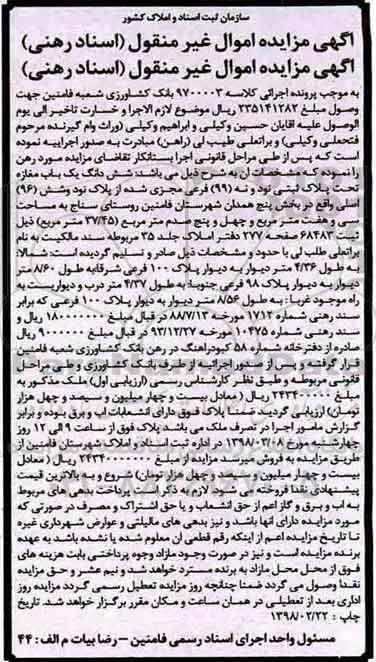 سازمان ثبت اسناد و املاک کشور
آگهی مزایده اموال غیر منقول (اسناد رهنی)
آگهی مزایده اموال غیر منقول (اسناد رهنی)
به موجب پرونده اجرائی کلاسه ۹۷۰۰۰۰۳ بانک کشاورزی شعبه فامنین جهت
وصول مبلغ ۲۳۵۱۴۱۲۸۲ ریال موضوع لازم الاجرا و خسارت تاخیر الی یوم
الوصول علیه آقایان حسین وکیلی و ابراهیم وکیلی (وراث وام گیرنده مرحوم
فتحعلی وکیلی) و براتعلی طیب لی (راهن) مبادرت به صدور اجراییه نموده
است که پس از طی مراحل قانونی اجرا بستانکار تقاضای مزایده مورد رهن
را نموده که مشخصات آن به شرح ذیل می باشد: شش دانگ یک باب مغازه
تحت پلاک ثبتی نود و نه (۹۹) فرعی مجزی شده از پلاک نود وشش (۹۶)
اصلی واقع در بخش پنج همدان شهرستان فامنین روستای سناج به مساحت
سی و هفت متر مربع و چهل و پنج صدم متر مربع (۳۷/۴۵) متر مربع) ذیل
ثبت ۶۸۴۸۳ صفحه ۲۷۷ دفتر املاک جلد ۳۵ مربوطه سند مالکیت به نام
براتعلی طلب لی با حدود و مشخصات ذیل صادر و تسلیم گردیده است: شمالا:
به طول ۴/۳۶ متر دیوار به دیوار پلاک ۱۰۰ فرعی شرقابه طول ۸/۶۰ متر
دیوار به دیوار پلاک ۹۸ فرعی جنوبا: به طول ۴/۳۷ متر درب و دیواریست به
راه موجود غربا: به طول ۸/۵۶ متر دیوار به دیوار پلاک ۱۰۰ فرعی که برابر
سند رهنی شماره ۱۷۱۲ مورخه ۸۸/۷/۱۳ در قبال مبلغ ۱۸۰۰۰۰۰۰۰ ریال و
سند رهنی شماره ۱۰۴۷۵ مورخه ۹۳/۱۲/۲۷ در قبال مبلغ ۹۰۰۰۰۰۰ ریال
صادره از دفترخانه شماره ۵۸ کبودراهنگ در رهن بانک کشاورزی شعبه فامنین
قرار گرفته و پس از صدور اجرائیه از طرف بانک کشاورزی و طی مراحل
قانونی مربوطه و طبق نظر کارشناس رسمی (ارزیابی اول) ملک مذکور به
مبلغ ۲۴۳۴۰۰۰۰۰ ریال (معادل بیست و چهار میلیون و سیصد و چهل هزار
تومان) ارزیابی گردید ضمنا پلاک فوق دارای انشعابات آب و برق بوده و برابر
گزارش مامور اجرا در تصرف ملک می باشد پلاک فوق از ساعت ۹ الی ۱۲ روز
چهارشنبه مورخ ۱۳۹۸/۰۳/۰۸ در اداره ثبت اسناد و املاک شهرستان فامنین از
طریق مزایده به فروش میرسد مزایده از مبلغ ۲۴۳۴۰۰۰۰۰ ریال (معادل
بیست و چهار میلیون و سیصد و چهل هزار تومان) شروع و به بالاترین قیمت
پیشنهادی نقدا فروخته می شود. لازم به ذکر است پرداخت بدهی های مربوط
به آب و برق و گاز اعم از حق انشعاب و یا حق اشتراک و مصرف در صورتی که
مورد مزایده دارای آنها باشد و نیز بدهی های مالیاتی و عوارض شهرداری غیره
تا تاریخ مزایده اعم از اینکه رقم قطعی آن معلوم شده یا نشده باشد به عهده
برنده مزایده است و نیز در صورت وجود مازاد وجوه پرداختی بابت هزینه های
فوق از محل مازاد به برنده مسترد خواهد شد و نیم عشر و حق مزایده
نقدا وصول می گردد ضمنا چنانچه روز مزایده تعطیل رسمی گردد مزایده روز
اداری بعد از تعطیلی در همان ساعت و مکان مقرر برگزار خواهد شد. تاریخ
چاپ : ۱۳۹۸/۰۲/۲۲
مسئول واحد اجرای اسناد رسمی فامنین - رضا بیات م الف : ۴۴